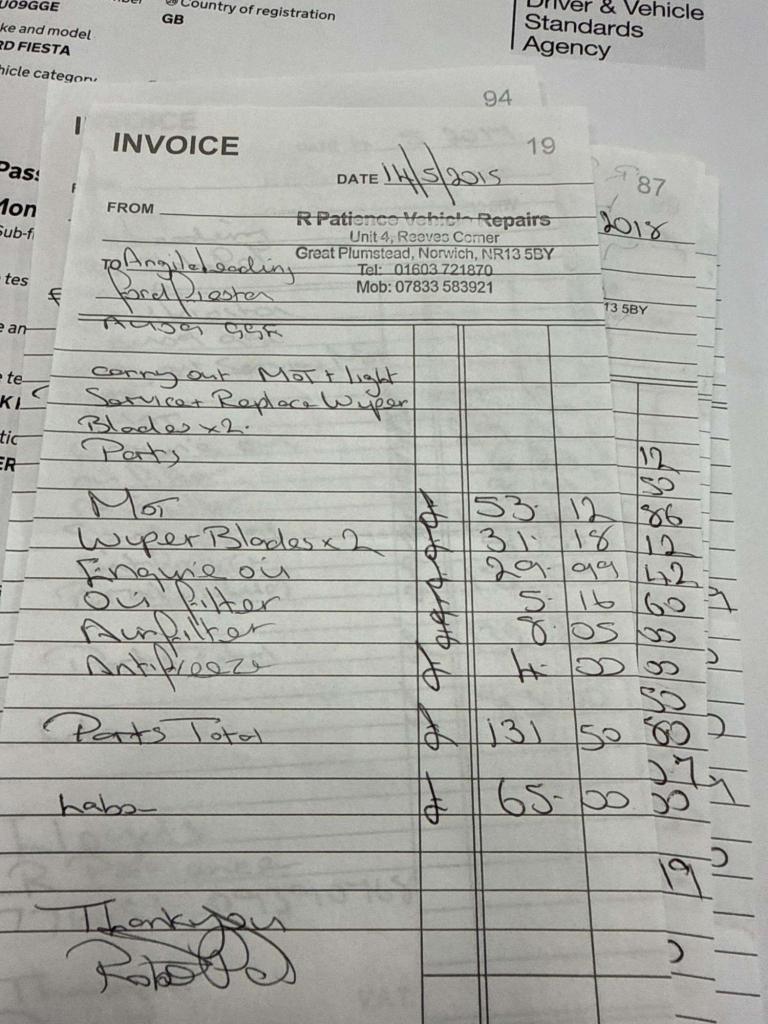 U09GGE
Country of registration
GB
ke and model
RD FIESTA
hicle category
Driver & Vehicle
Standards
Agency
94
INVOICE
19
DATE 14/5/2015
FROM
R Patience Vehicle Repairs
Unit 4, Reeves Corner
Great Plumstead, Norwich, NR13 5BY
Tel: 01603 721870
Mob: 07833 583921
TO
Ford Fiesta
carry out MOT + light
Service + Replace Wyper
Blades x 2.
Parts
MOT £ 53. 12
Wyper Blades x 2 £ 31. 18
Engine oil £ 29. 99
Oil filter £ 5. 16
Air filter £ 8. 05
Antifreeze £ 4. 00
Parts Total £ 131 50
Labo £ 65. 00
Thankyou
87
2018
13 5BY
12
50
86
12
42
60
00
00
50
80
00
19
Pass
Mon
Sub-fi
tes
e an
te
KI
tic
ER